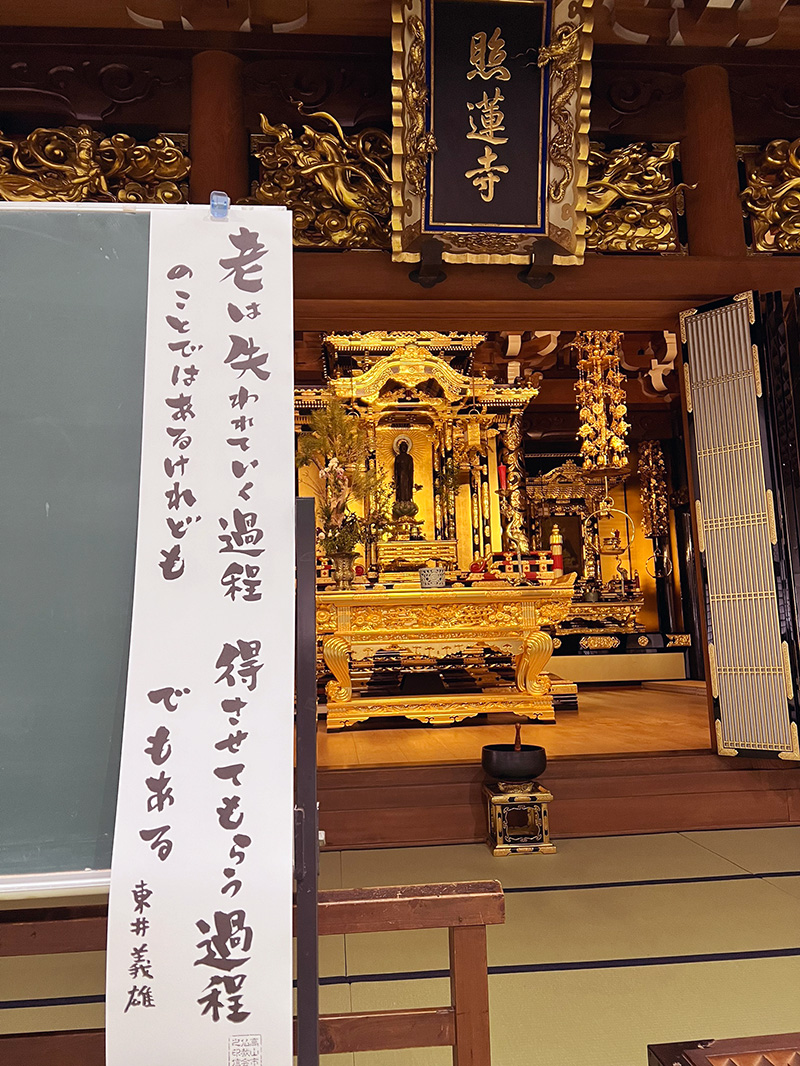 照蓮寺
老は失われていく過程
のことではあるけれども
得させてもらう過程
でもある
東井義雄
高山市
仏教会